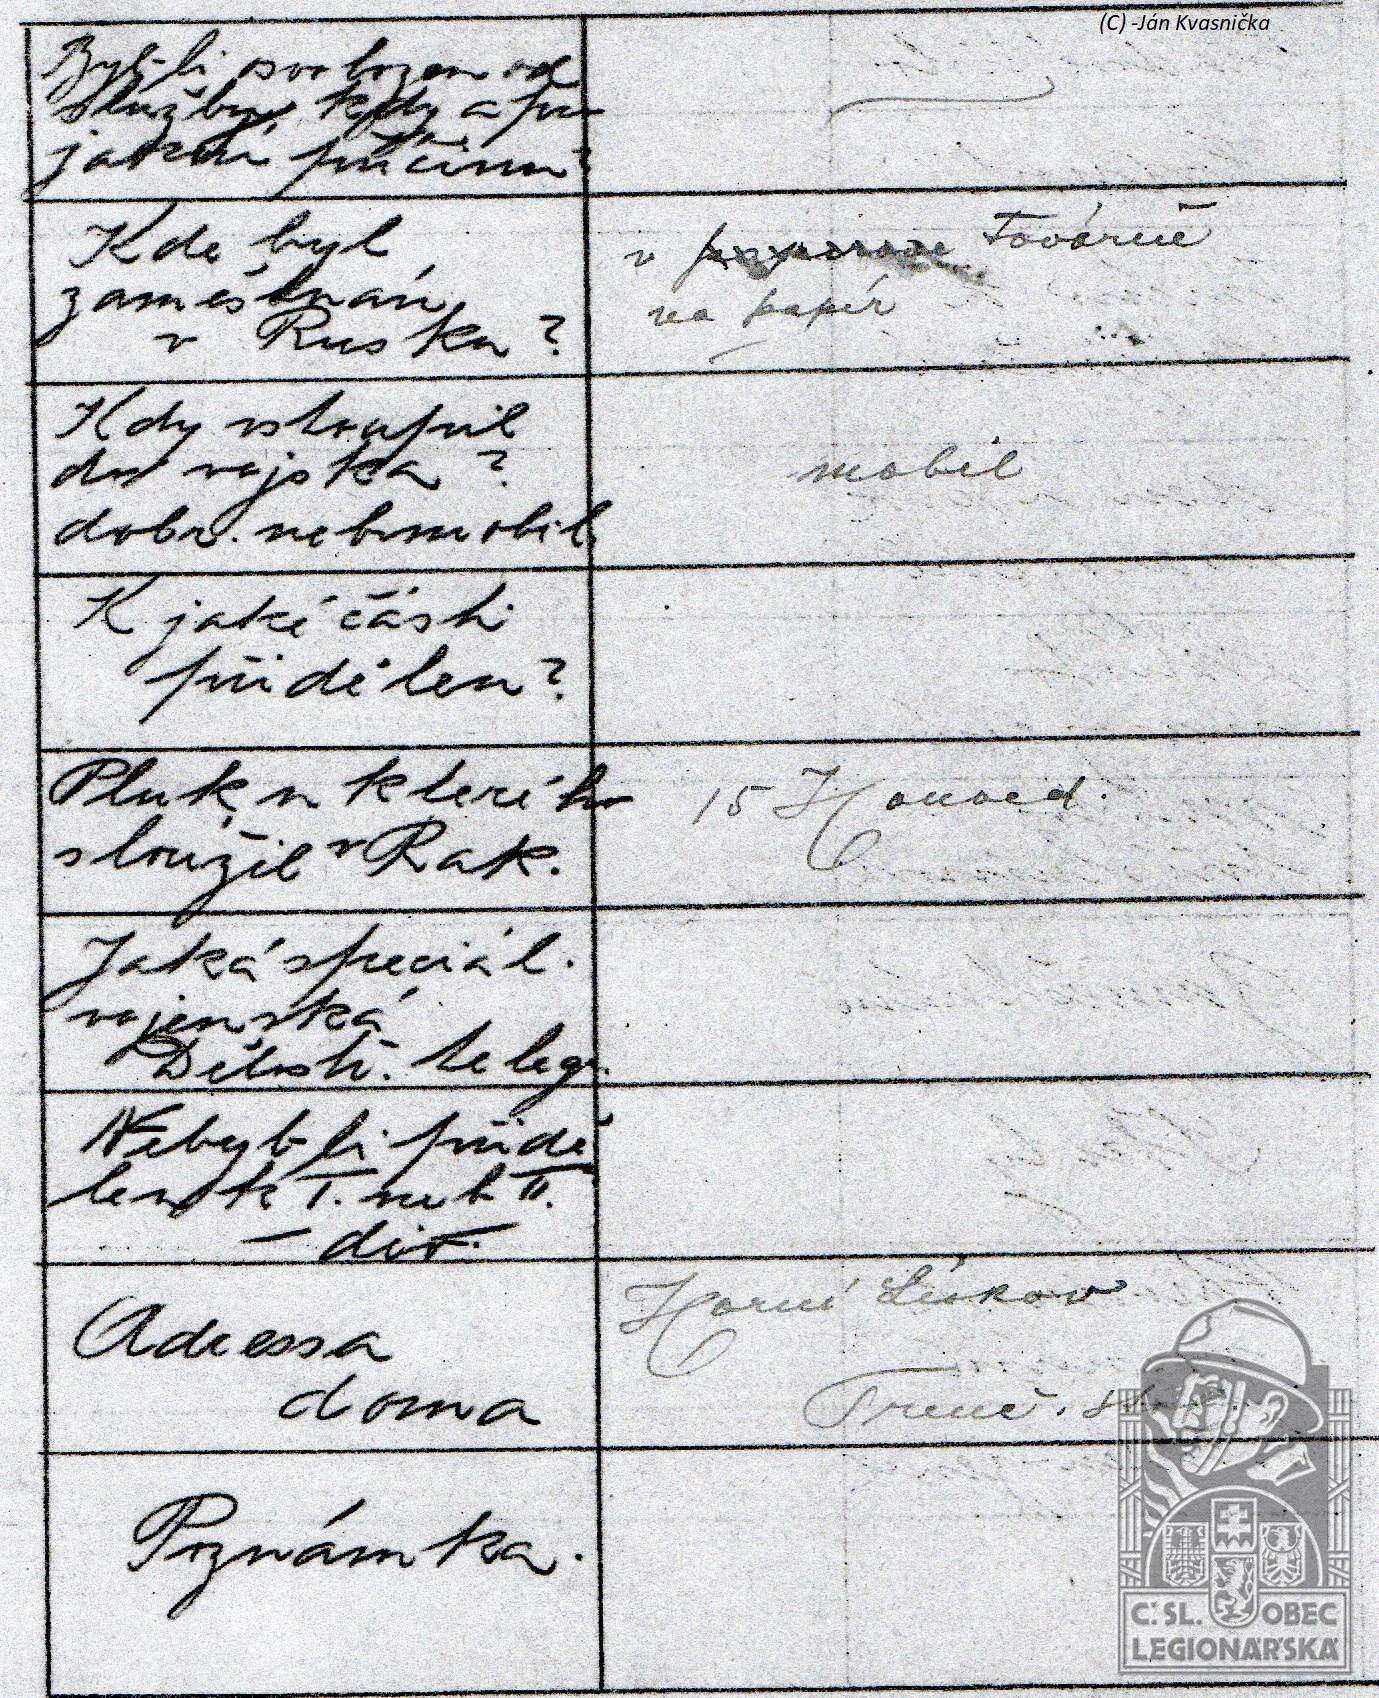 (C) -Ján Kvasnička
Byl-li osvobozen od
služby, kdy a pro
jakou příčinu?
Kde byl
zaměstnán
v Rusku?
v továrně
na papír
Kdy vstoupil
do vojska?
dobr. neb mobil.
mobil
K jaké části
přidělen?
Pluk u kterého
sloužil v Rak.
15 Honved.
Jaká speciál.
vojenská
Dělostř. telegr.
Nebyl-li přidě
len k I. neb II.
— div.
Adressa
doma
Horní
Trenč.
Poznámka.
Č. SL. OBEC
LEGIONÁŘSKÁ